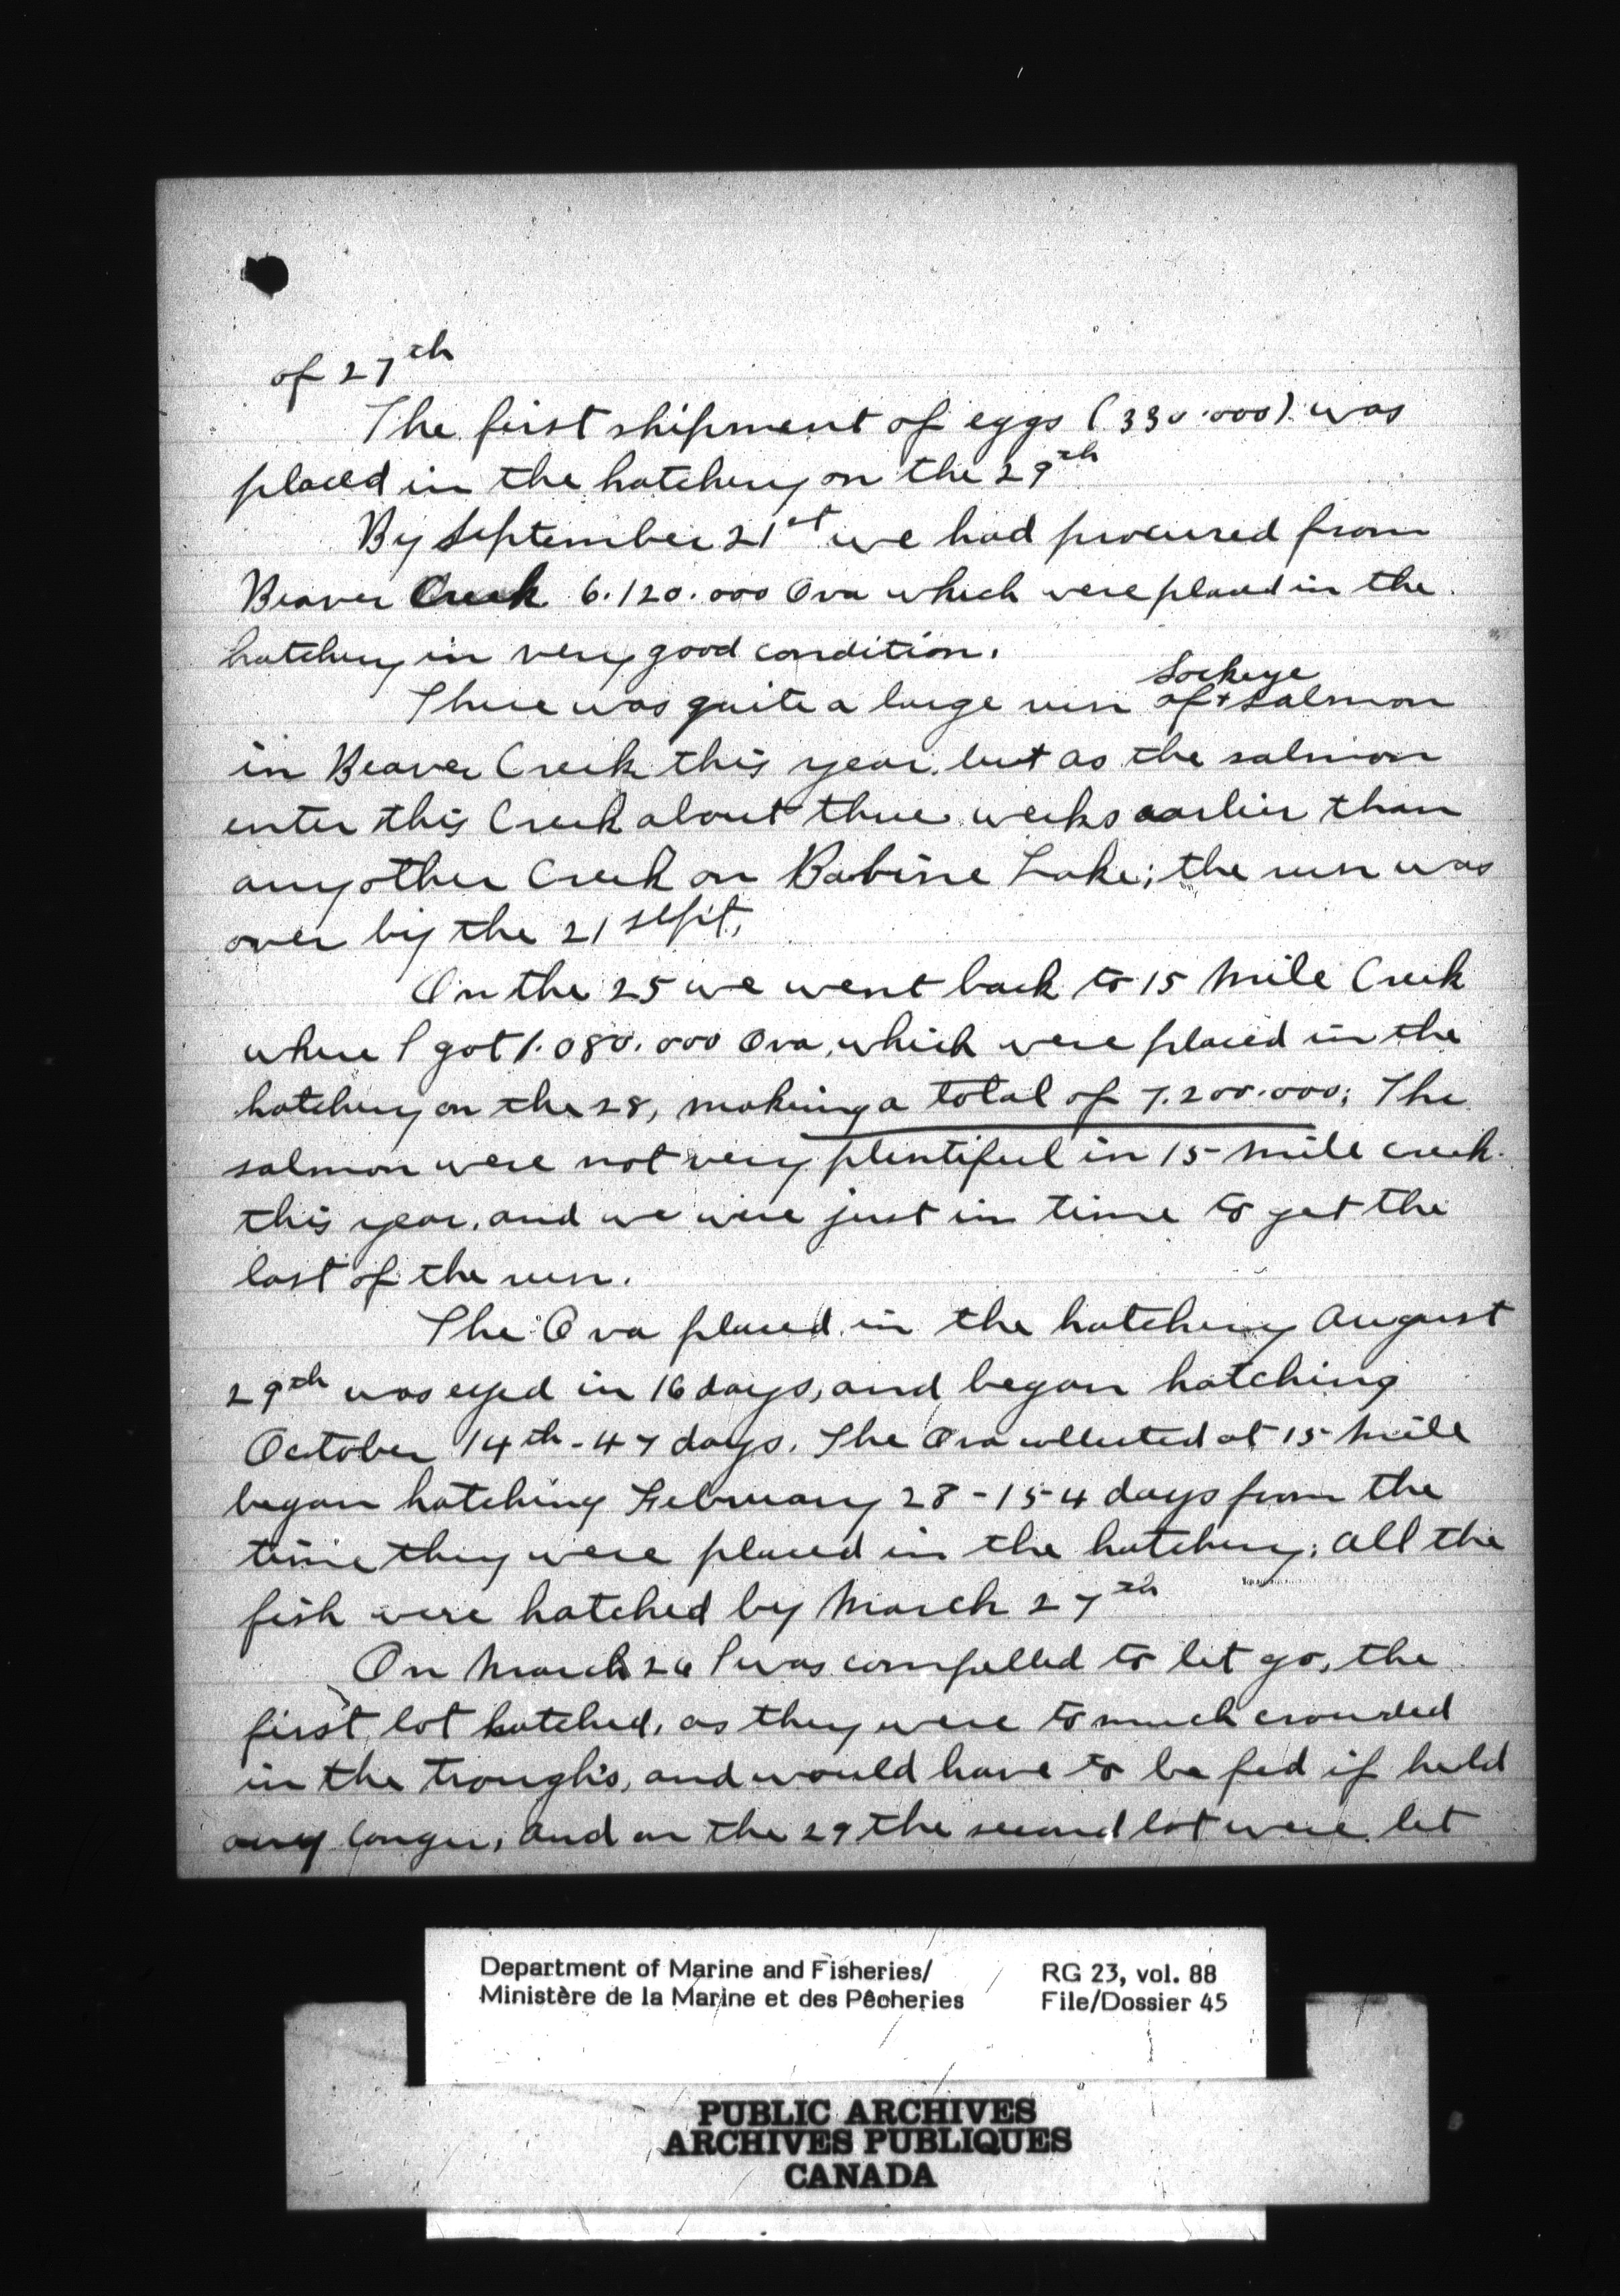 of 27th
The first shipment of eggs (330.000) was
placed in the hatchery on the 29th
By September 21st we had procured from
Beaver Creek 6.120.000 Ova which were placed in the
hatchery in very good condition.
Sockeye
There was quite a large run of + Salmon
in Beaver Creek this year, but as the salmon
enter this Creek about three weeks earlier than
any other Creek on Babine Lake; the run was
over by the 21 Sept,
On the 25 we went back to 15 Mile Creek
where I got 1.080.000 Ova, which were placed in the
hatchery on the 28, making a total of 7.200.000; The
salmon were not very plentiful in 15 mile creek
this year, and we were just in time to get the
last of the run.
The Ova placed in the hatchery August
29th was eyed in 16 days, and began hatching
October 14th - 47 days. The Ova collected at 15 Mile
began hatching February 28 - 154 days from the
time they were placed in the hatchery; all the
fish were hatched by March 27th
On March 26 I was compelled to let go, the
first lot hatched, as they were to much crowded
in the trough's, and would have to be fed if held
any longer, and on the 29 the second lot were let
Department of Marine and Fisheries/
Ministère de la Marine et des Pêcheries
RG 23, vol. 88
File/Dossier 45
PUBLIC ARCHIVES
ARCHIVES PUBLIQUES
CANADA